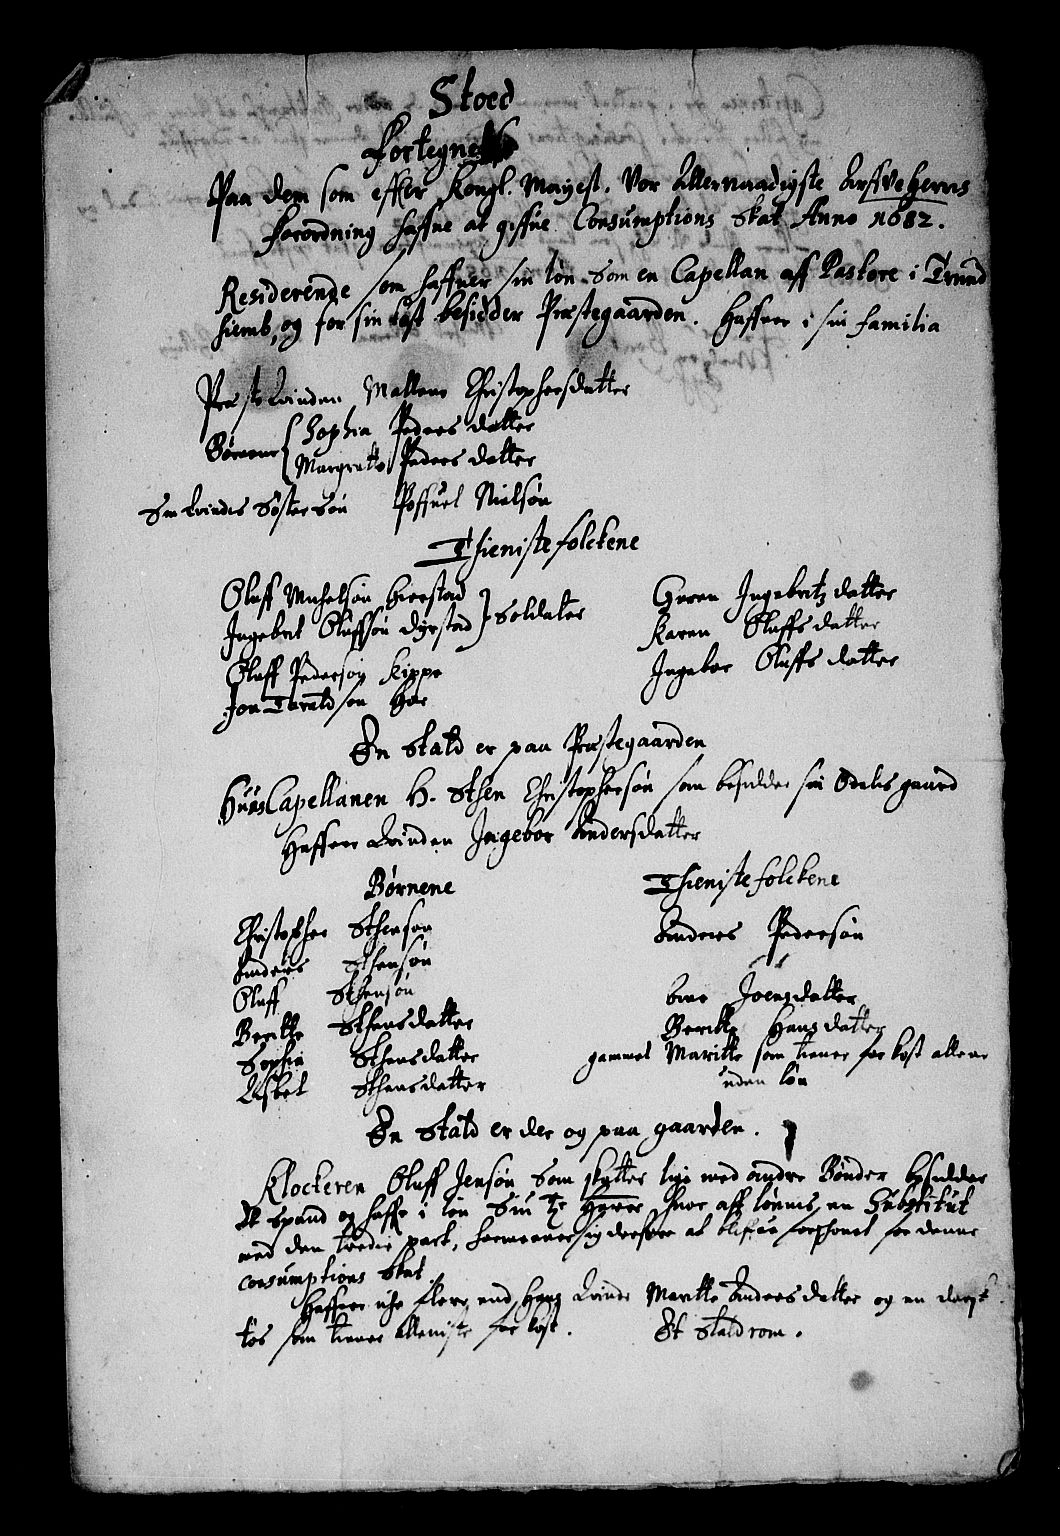 Stoed
Fortegnels
Paa dem som effter Kongl. Mayest. Vor Allernaadigste Arffve Herris
forordning haffue at giffue Consumptions Skat Anno 1682.
Residerende som haffuer sin løn som en Capellan aff Pastore i Trund
hiemb, og for sin kost besidder Præstegaarden. Haffuer i sin familia
Præste Qvinden Mallene Christophersdatter
Børnene { Sophia Peders datter
Margrette Peders datter
Sin Qvindis Søster Søn Poffuel Nielsøn
Thieniste folckene
Oluff Michelsøn Hierstad
Ingebret Oluffsøn Dyrstad } Soldater
Oluff Pedersøn Kippe
Jon Taraldsøn Hoe
Goren Ingebritz datter
Karen Oluffs datter
Ingebor Oluffs datter
En Stald er paa Præstegaarden
Huus Capellanen H. Sthen Christophersøn som besidder sin Odels gaard
Haffuer Qvinden Ingebor Andersdatter
Børnene
Christopher Sthensøn
Anders Sthensøn
Oluff Sthensøn
Beritte Sthensdatter
Sophia Sthensdatter
Lisbet Sthensdatter
Thieniste folckene
Anders Pedersøn
Joensdatter
Beritte Hansdatter
gammel Maritte som tiener for kost allene
uden løn
En Stald er der og paa gaarden.
Klockeren Oluff Jensøn som skatter lige med andre Bønder besidder
Et spand og haffr i løn Sin hvor aff lønnis en Substitut
med den tredie part, formeener sig derfore at bliffue forschonet for denne
consumptions Skat.
Haffuer iche flere end Hans Qvinde Maritte Anders datter og en
tøs som tiener alleniste for kost. Et Stald rom.